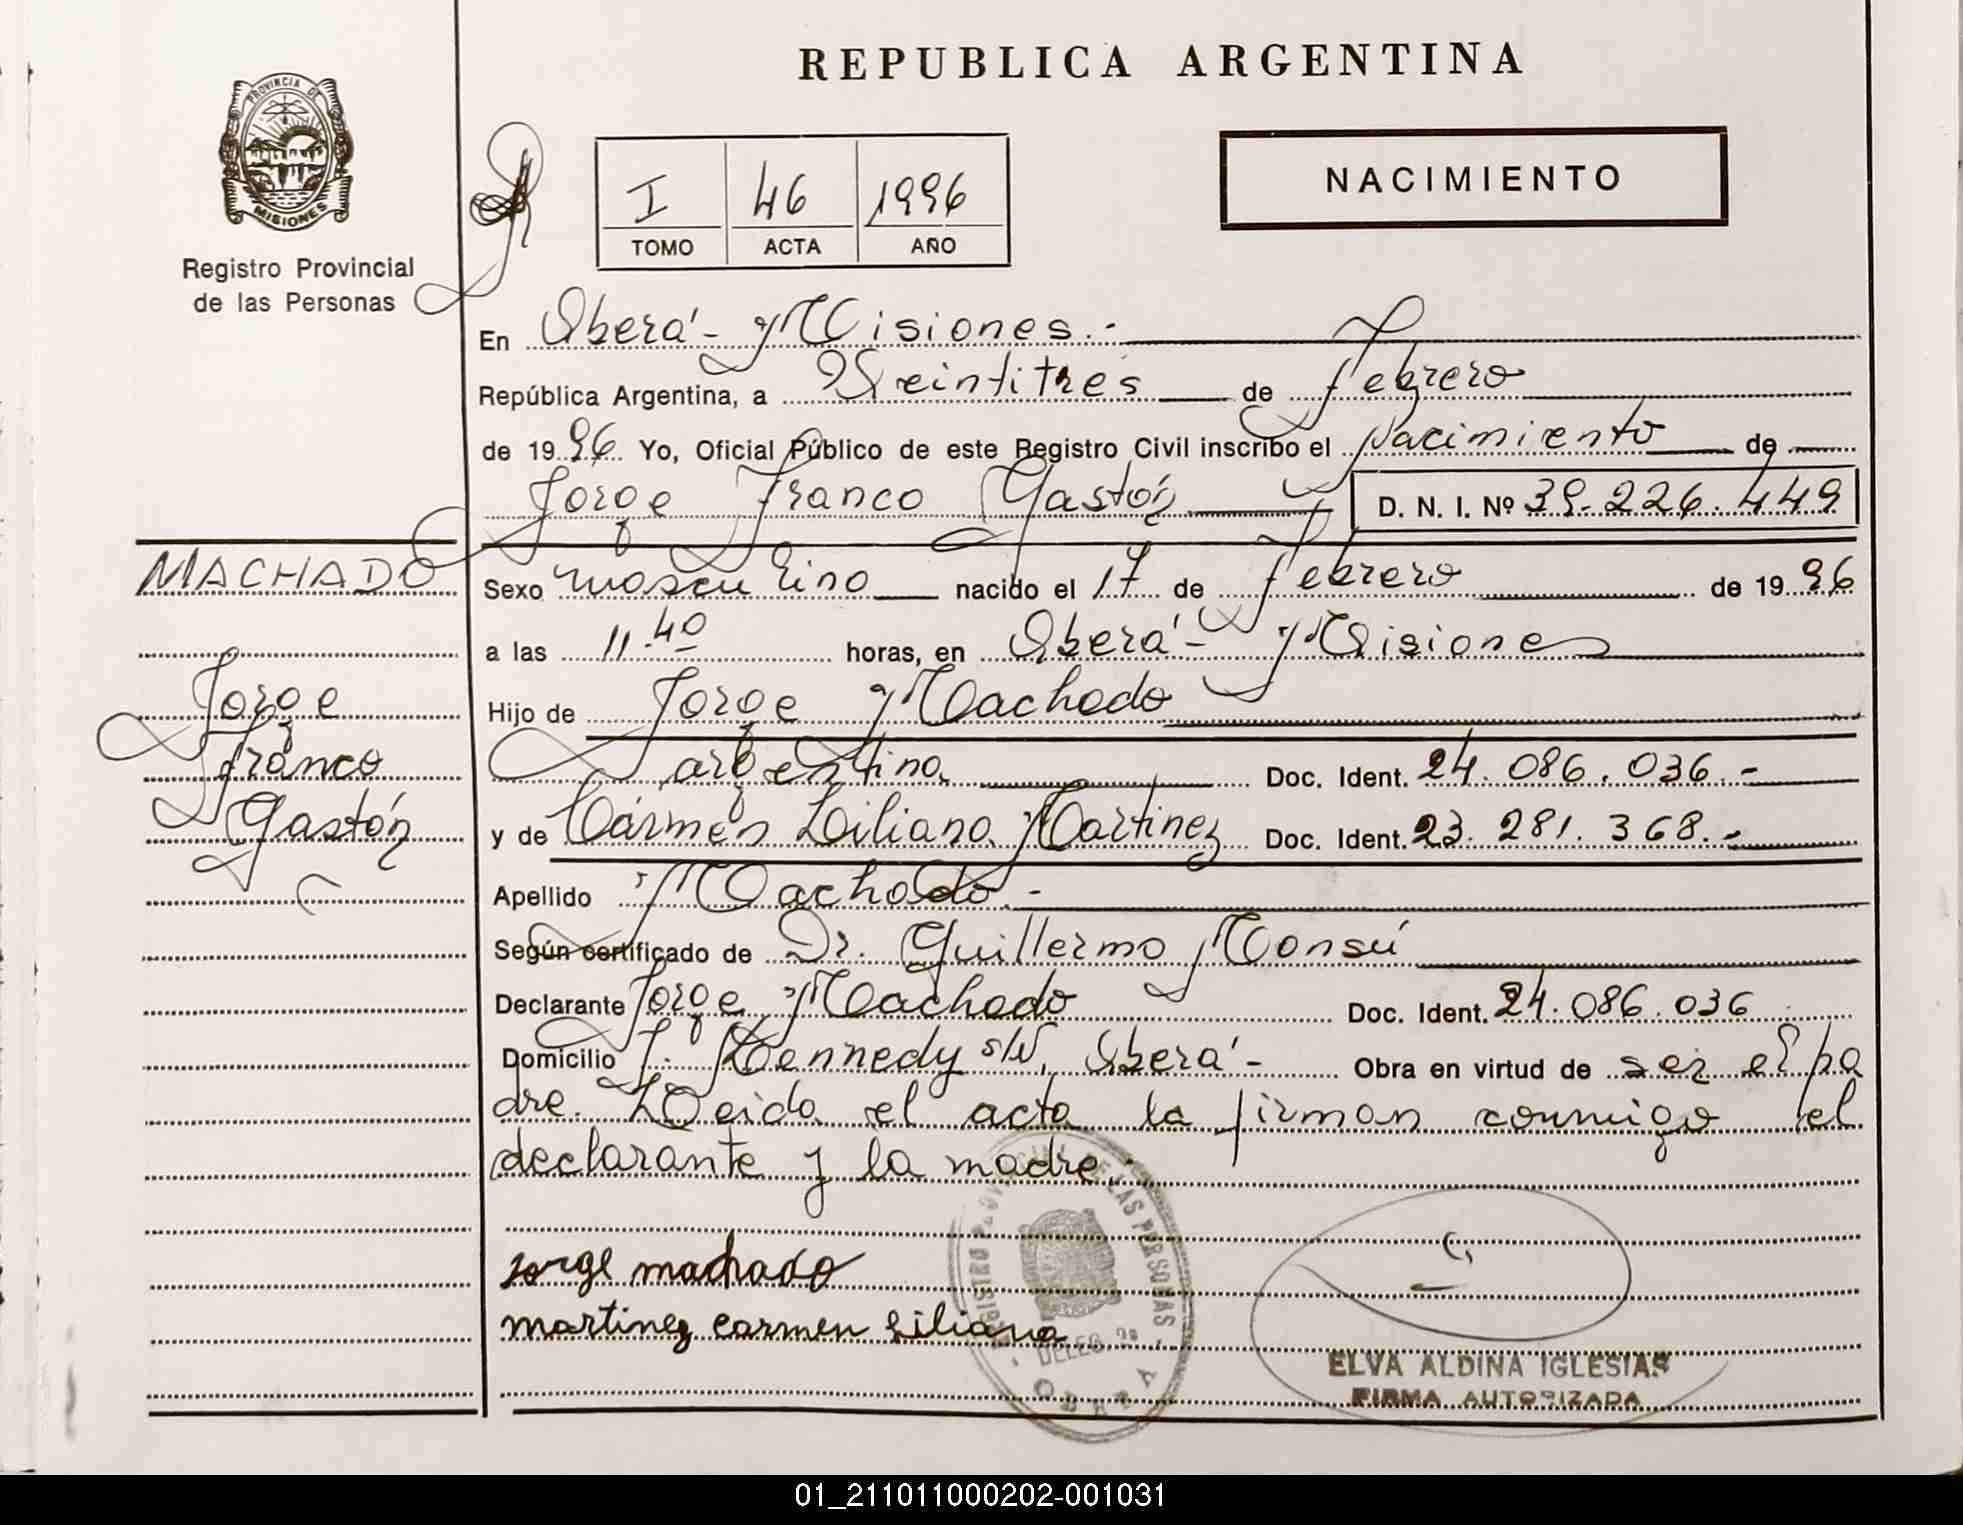 PROVINCIA DE
MISIONES
Registro Provincial
de las Personas
REPUBLICA ARGENTINA
I 46 1996
TOMO ACTA AÑO
NACIMIENTO
En Oberá - Misiones.-
República Argentina, a Veintitres de Febrero
de 1996 Yo, Oficial Público de este Registro Civil inscribo el Nacimiento de
Jorge Franco Gastón D. N. I. Nº 39.226.449
MACHADO
Jorge
Franco
Gastón
Sexo masculino nacido el 17 de Febrero de 1996
a las 11.40 horas, en Oberá - Misiones
Hijo de Jorge Machado
argentino Doc. Ident. 24.086.036.-
y de Cármen Liliana Martinez Doc. Ident. 23.281.368.-
Apellido Machado.-
Según certificado de Dr. Guillermo Monsú
Declarante Jorge Machado Doc. Ident. 24.086.036
Domicilio J. Kennedy s/N, Oberá - Obra en virtud de ser el pa
dre. Leida el acta la firman conmigo el
declarante y la madre.
Jorge machado
martinez carmen Liliana
REGISTRO PROVINCIAL DE LAS PERSONAS
OBERA
ELVA ALDINA IGLESIAS
FIRMA AUTORIZADA
01_211011000202-001031